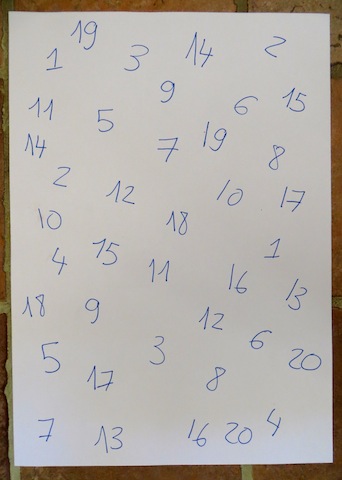 19
1 3 14 2
9
11 5 6 15
14 7 19 8
2 12 10 17
10 18
4 15 1
11 16 13
18 9 12
5 3 6 20
17 8
7 13 16 20 4